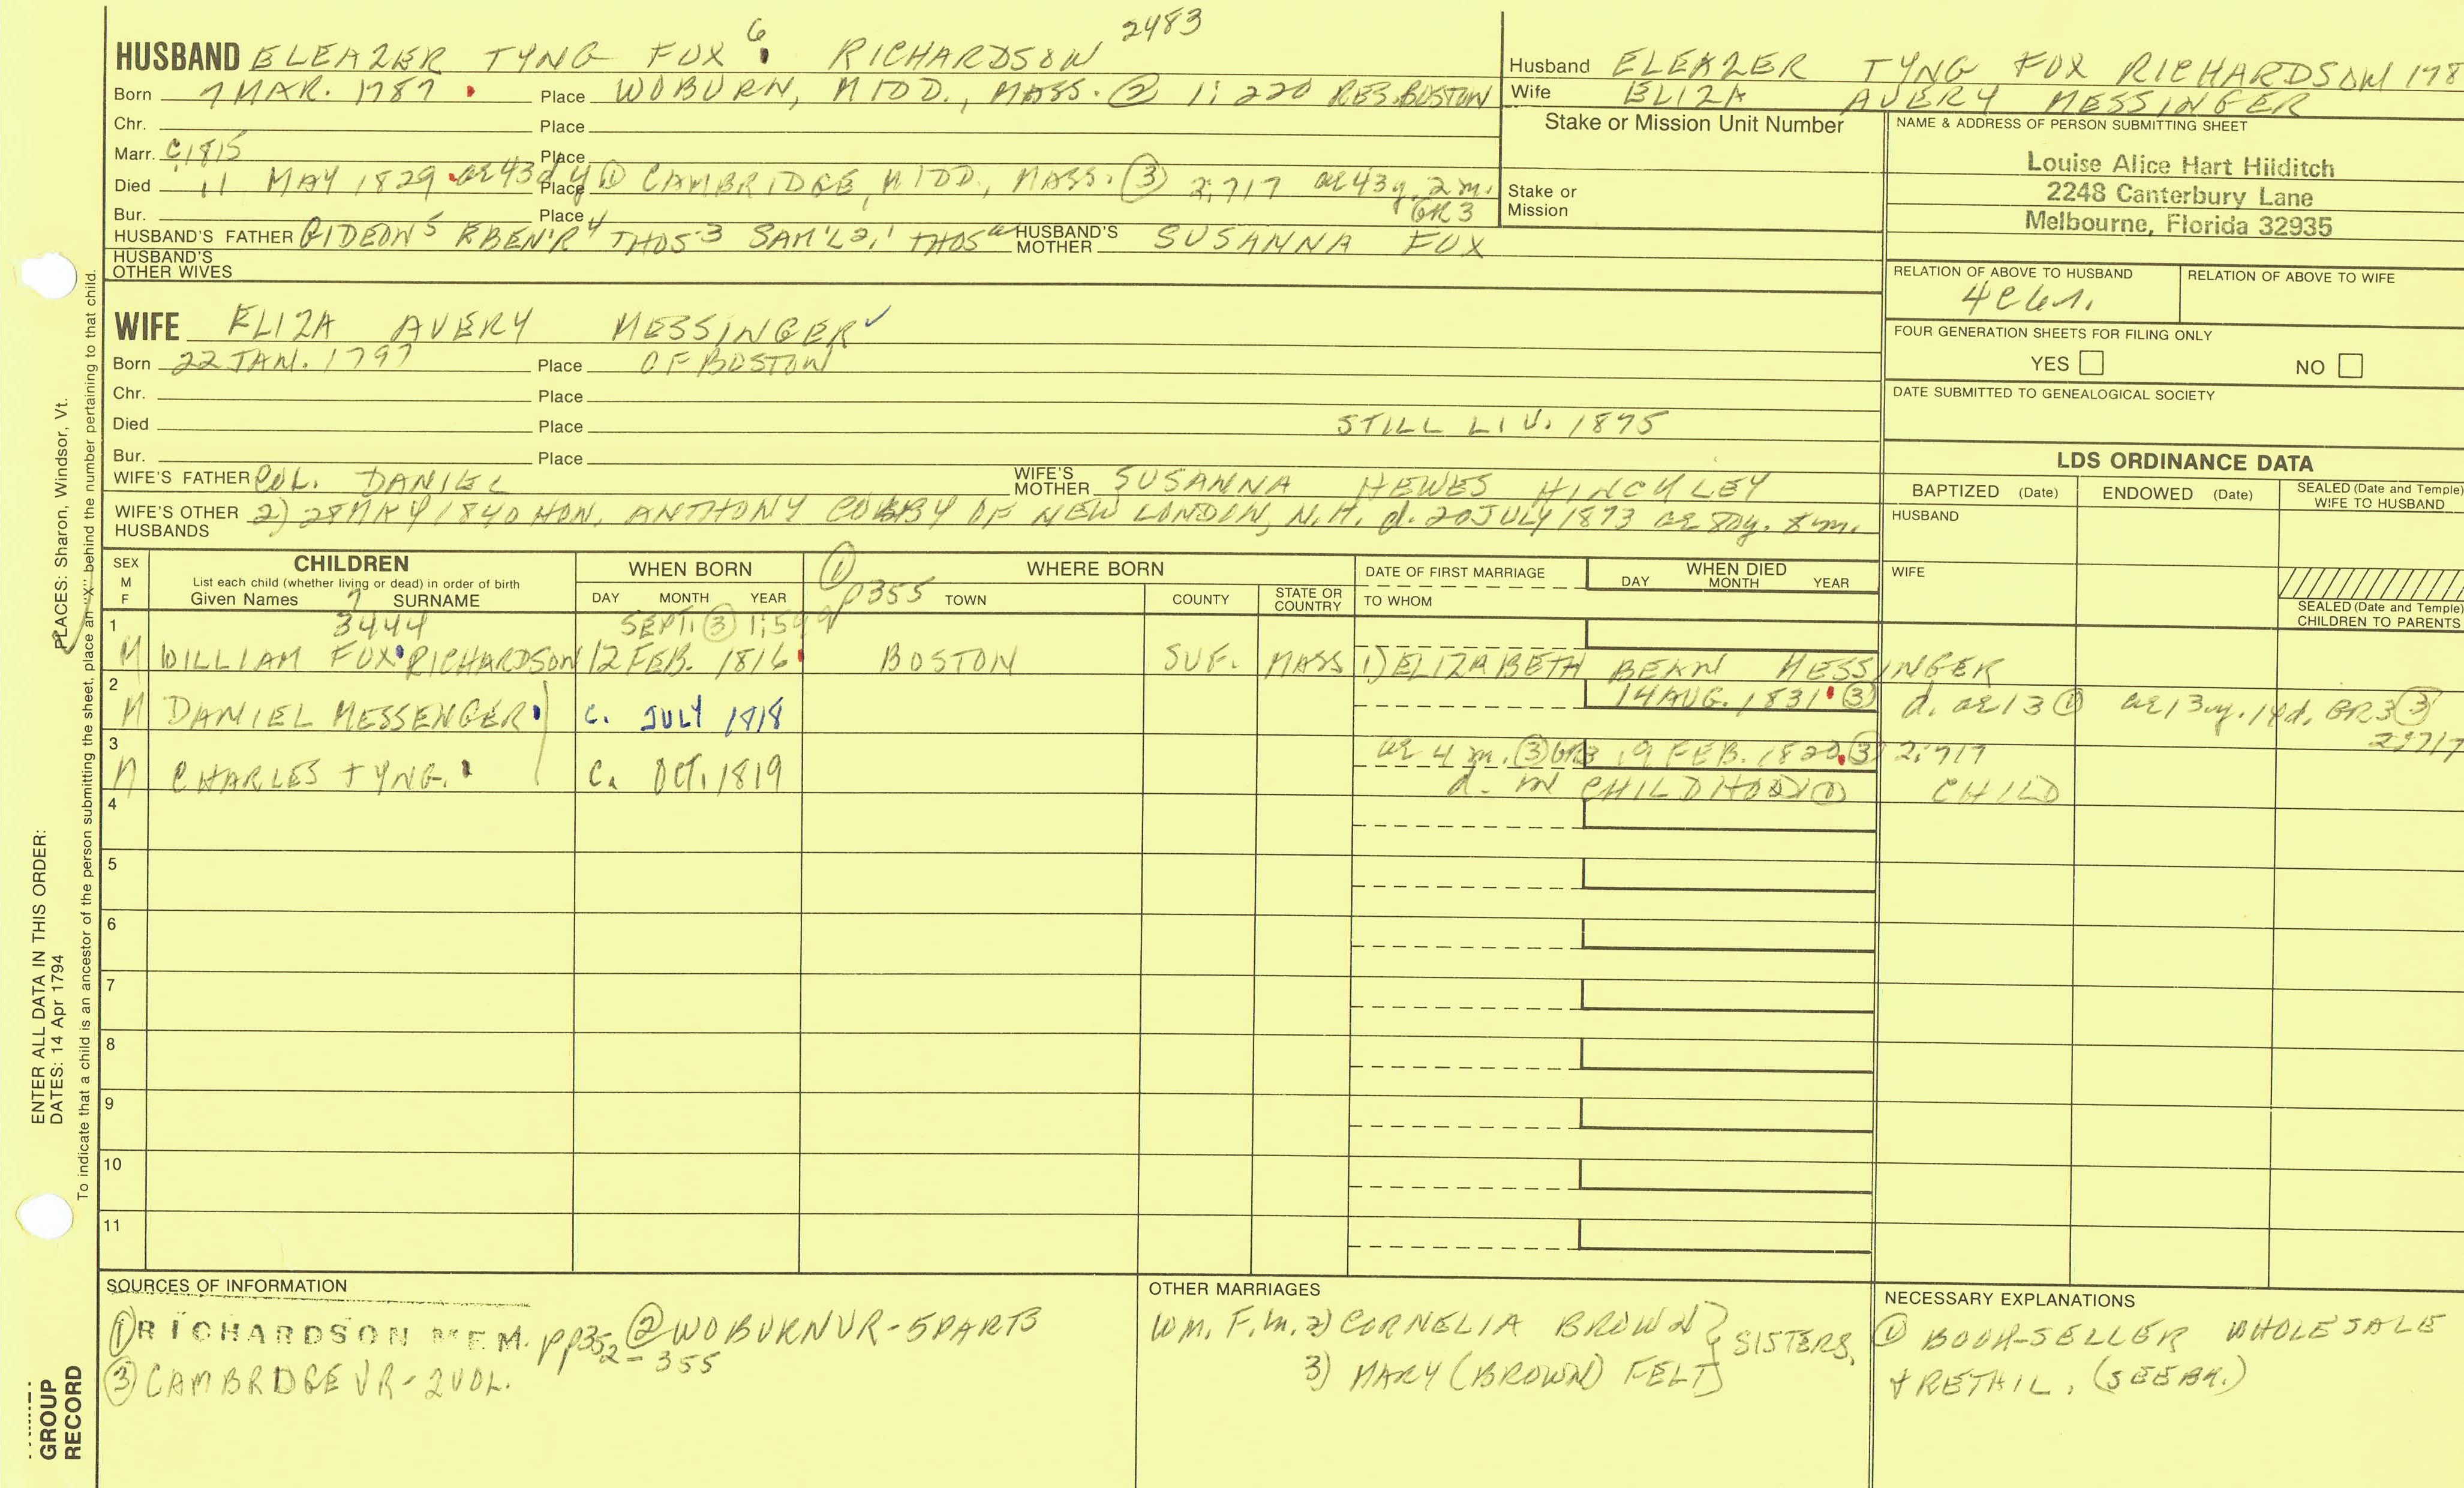 2483
HUSBAND ELEAZER TYNG FOX 6 RICHARDSON
Born 7 MAR. 1787 Place WOBURN, MIDD., MASS. ② 1:220 RES. BOSTON
Chr. Place
Marr. C1815 Place
Died 11 MAY 1829 ae 43 d Place ① CAMBRIDGE, MIDD., MASS. ③ 2:717 ae 43y. 2m. GR3
Bur. Place
HUSBAND'S FATHER GIDEON5 EBEN'R4 THOS3 SAM'L2,1 THOSa HUSBAND'S MOTHER SUSANNA FOX
HUSBAND'S OTHER WIVES
Husband ELEAZER TYNG FOX RICHARDSON 178
Wife ELIZA AVERY MESSINGER
Stake or Mission Unit Number
Stake or Mission
NAME & ADDRESS OF PERSON SUBMITTING SHEET
Louise Alice Hart Hilditch
2248 Canterbury Lane
Melbourne, Florida 32935
RELATION OF ABOVE TO HUSBAND
RELATION OF ABOVE TO WIFE
FOUR GENERATION SHEETS FOR FILING ONLY
YES NO
DATE SUBMITTED TO GENEALOGICAL SOCIETY
WIFE ELIZA AVERY MESSINGER ✓
Born 22 JAN. 1797 Place OF BOSTON
Chr. Place
Died Place STILL LIV. 1875
Bur. Place
WIFE'S FATHER COL. DANIEL WIFE'S MOTHER SUSANNA HEWES HINCKLEY
WIFE'S OTHER HUSBANDS 2) 28 MAY 1840 HON. ANTHONY COLBY OF NEW LONDON, N.H. d. 20 JULY 1873 ae 80y. 8m.
LDS ORDINANCE DATA
BAPTIZED (Date) ENDOWED (Date) SEALED (Date and Temple) WIFE TO HUSBAND
HUSBAND
WIFE
SEALED (Date and Temple) CHILDREN TO PARENTS
SEX M F
CHILDREN
List each child (whether living or dead) in order of birth
Given Names 7 SURNAME
WHEN BORN
DAY MONTH YEAR
① p355
WHERE BORN
TOWN COUNTY STATE OR COUNTRY
DATE OF FIRST MARRIAGE
TO WHOM
WHEN DIED
DAY MONTH YEAR
1 3444 SEPT. ③
M WILLIAM FOX RICHARDSON 12 FEB. 1816 BOSTON SUF. MASS 1) ELIZABETH BEAN MESSINGER
2 14 AUG. 1831 ③ d. ae 13 ① ae 13y. 14d. GR3 ③ 2:717
M DANIEL MESSENGER c. JULY 1818
3 ae 4 m. ③ GR3 19 FEB. 1820 ③ 2:717
M CHARLES TYNG. c. OCT. 1819 d. in CHILDHOOD ① CHILD
4
5
6
7
8
9
10
11
SOURCES OF INFORMATION
① RICHARDSON MEM. pp352-355 ② WOBURN VR-5 PARTS
③ CAMBRDGE VR-2 VOL.
OTHER MARRIAGES
Wm. F. m. 2) CORNELIA BROWN } SISTERS.
3) MARY (BROWN) FELT
NECESSARY EXPLANATIONS
① BOOK-SELLER WHOLESALE
+ RETAIL.
ENTER ALL DATA IN THIS ORDER:
DATES: 14 Apr 1794 PLACES: Sharon, Windsor, Vt.
To indicate that a child is an ancestor of the person submitting the sheet, place an "X" behind the number pertaining to that child.
GROUP
RECORD